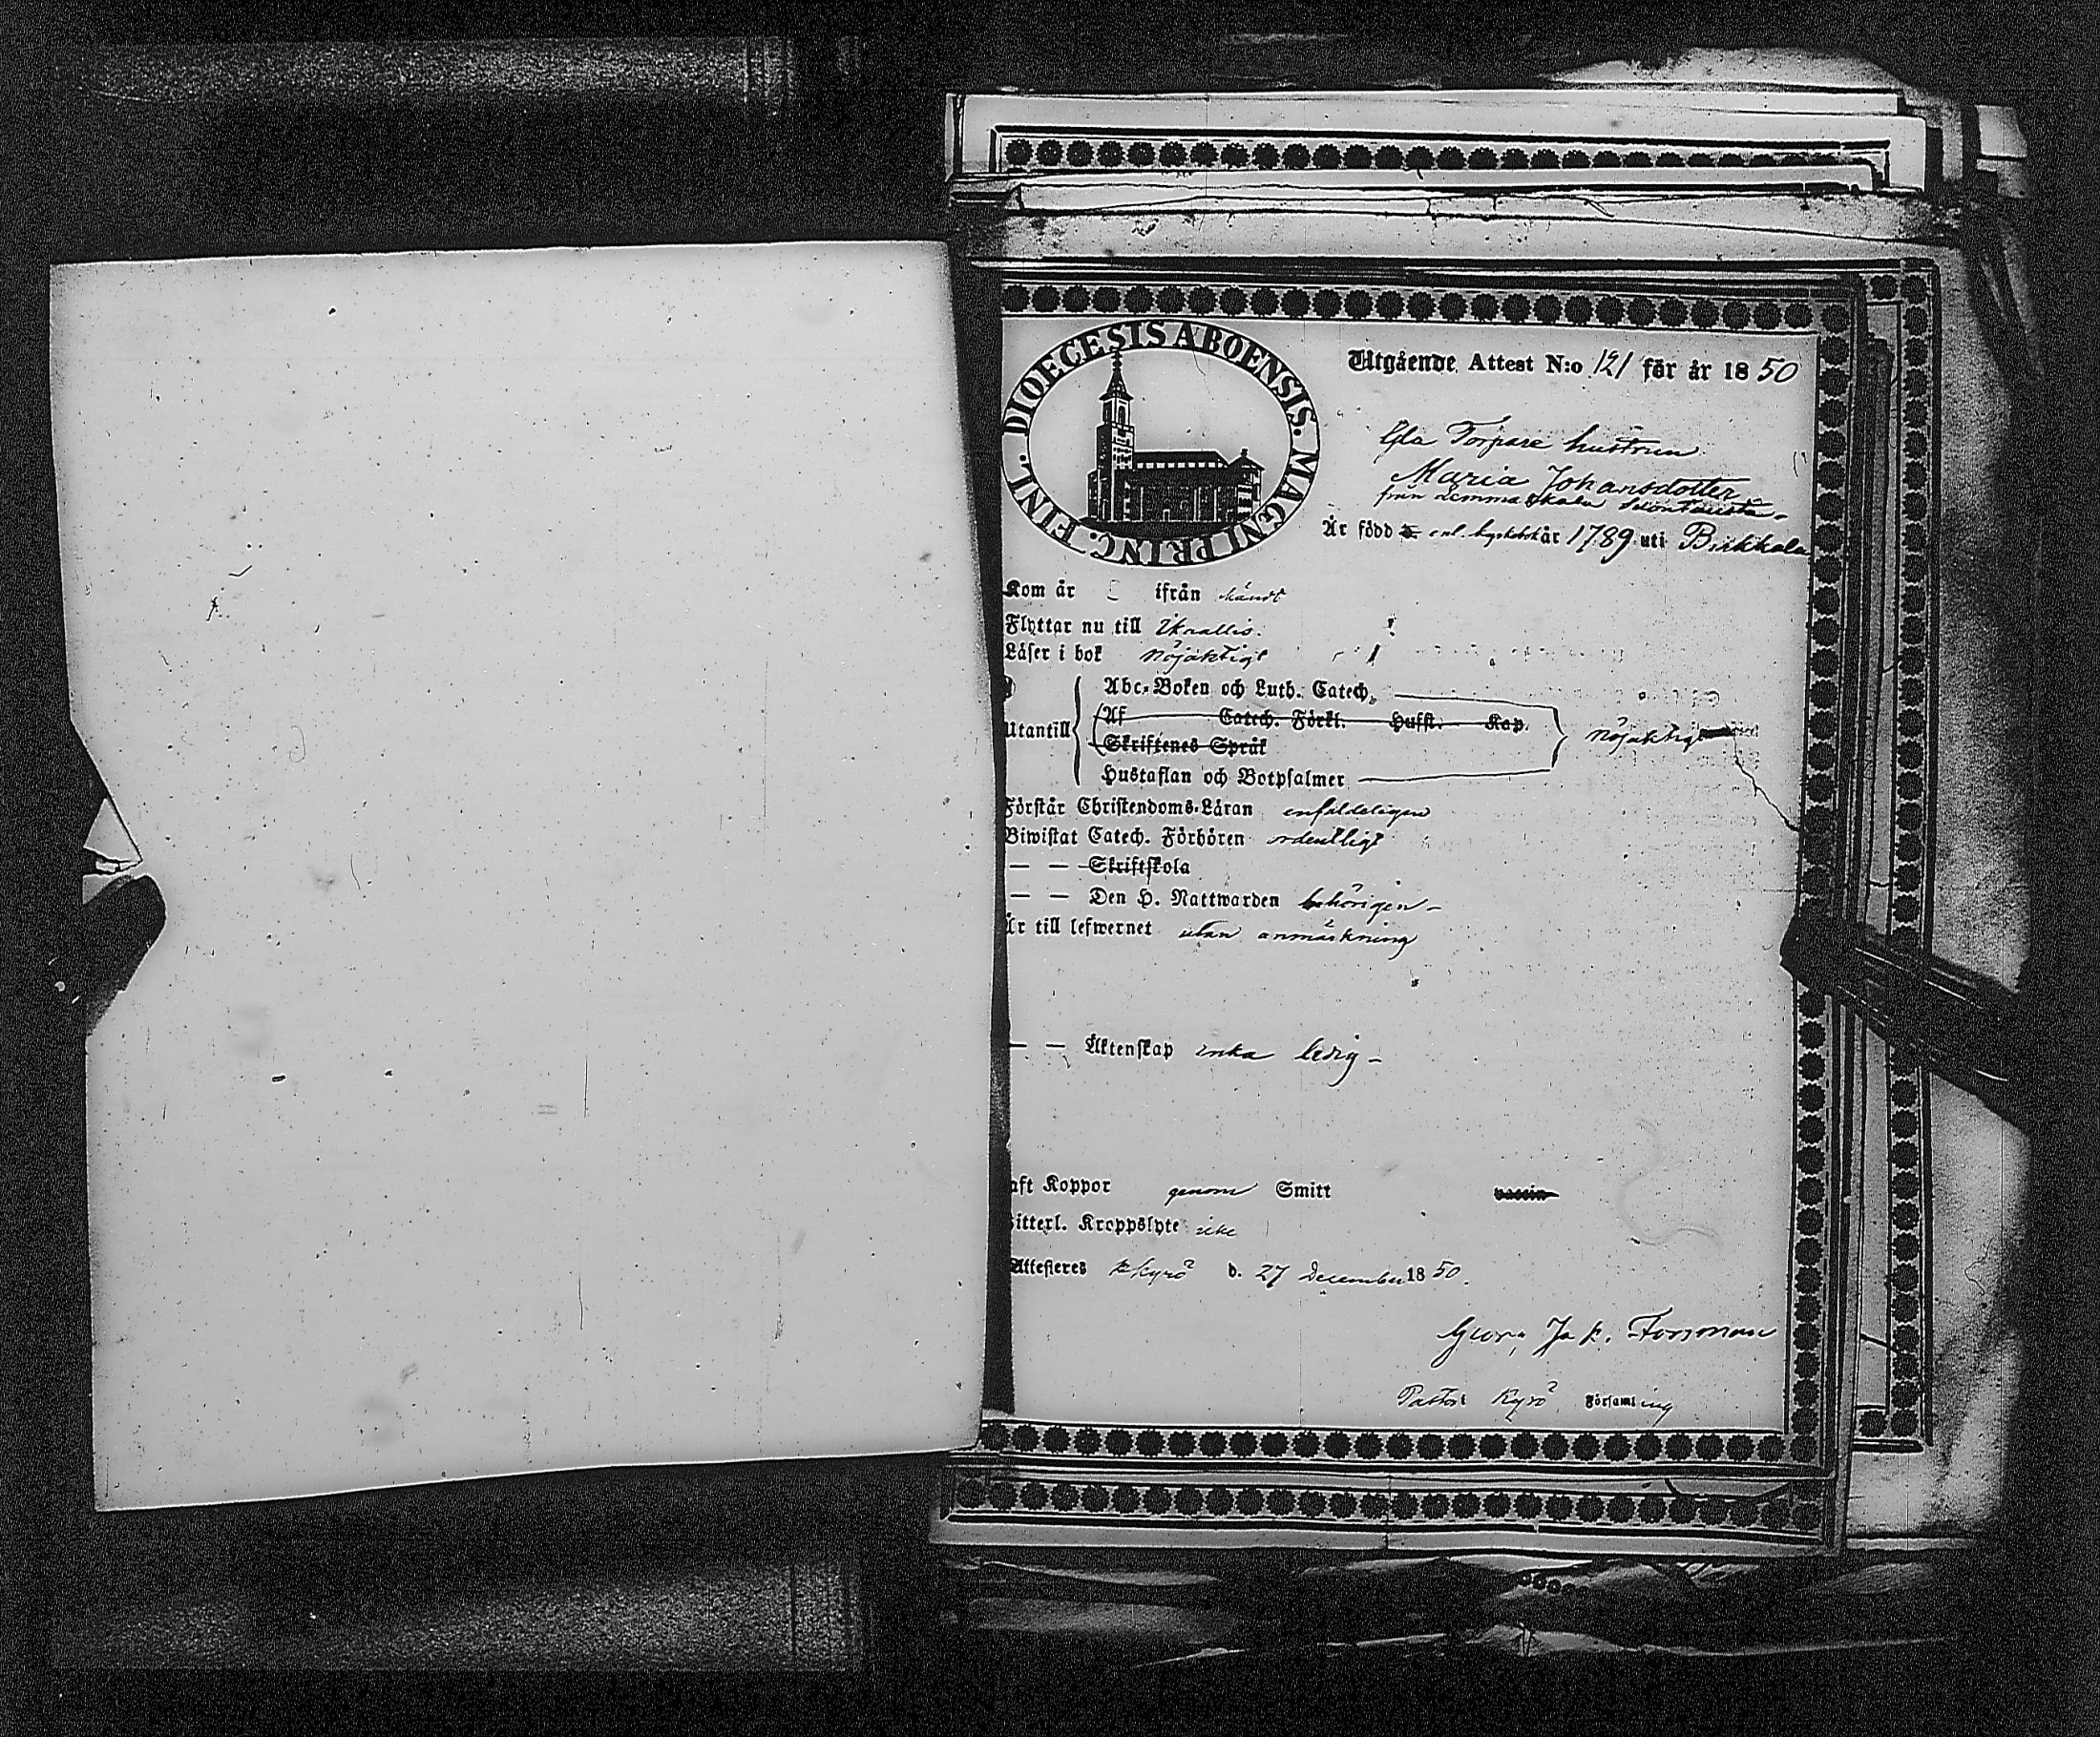 DIOECESIS ABOENSIS. MAGNI PRINC. FINL.
Utgående Attest N:o 121 för år 1850
Torpare hustrun
Maria Johansdotter
från Lemmakkala
Är född enl. kyrkobok år 1789 uti Birkkala
Kom år ifrån
Flyttar nu till Ikalis.
Läser i bok nöjaktigt
Utantill
Abc-Boken och Luth. Catech.
Af Catech. Förkl. Husst. Kap.
Skriftenes Språk
nöjaktigt
Hustaflan och Botpsalmer
Förstår Christendoms-Läran enfaldeligen
Biwistat Catech. Förhören ordentligt
— — Skriftskola
— — Den H. Nattwarden behörigen –
Är till lefwernet utan anmärkning
— — Äktenskap enka ledig –
aft Koppor genom Smitt vaccin
itterl. Kroppslyte icke
Attesteres Kyrö d. 27 December 1850.
Geor. Jak. Forsman
Pastor i Kyrö Församling